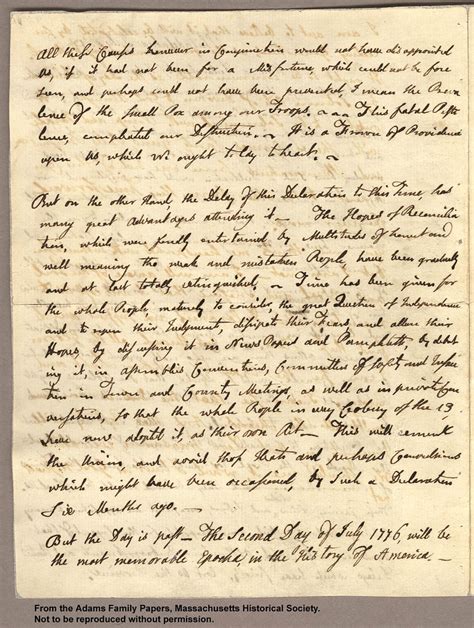 All these Causes however in Conjunction would not have disappointed
Us, if it had not been for a Misfortune, which could not be fore
seen, and perhaps could not have been prevented, I mean the Preva
lence of the Small Pox among our Troops. This fatal Pesti
lence, compleated our Destruction. It is a Frown of Providence
upon Us, which We ought to lay to heart.
But on the other Hand, the Delay of this Declaration to this Time, has
many great Advantages attending it — The Hopes of Reconcilia
tion, which were fondly entertained by Multitudes of honest and
well meaning tho weak and mistaken People, have been gradually
and at last totally extinguished. Time has been given for
the whole People, maturely to consider, the great Question of Independence
and to ripen their Judgments, dissipate their Fears, and allure their
Hopes, by discussing it in News Papers and Pamphletts, by debat
ing it, in Assemblies, Conventions, Committees of Safety and Inspec
tion, in Town and County Meetings, as well as in private Con
versations, so that the whole People in every Colony of the 13
have now adopted it, as their own Act — This will cement
the Union, and avoid those Heats and perhaps Convulsions
which might have been occasioned, by such a Declaration
Six Months ago. —
But the Day is past — The Second Day of July 1776, will be
the most memorable Epocha, in the History of America. —
From the Adams Family Papers, Massachusetts Historical Society.
Not to be reproduced without permission.